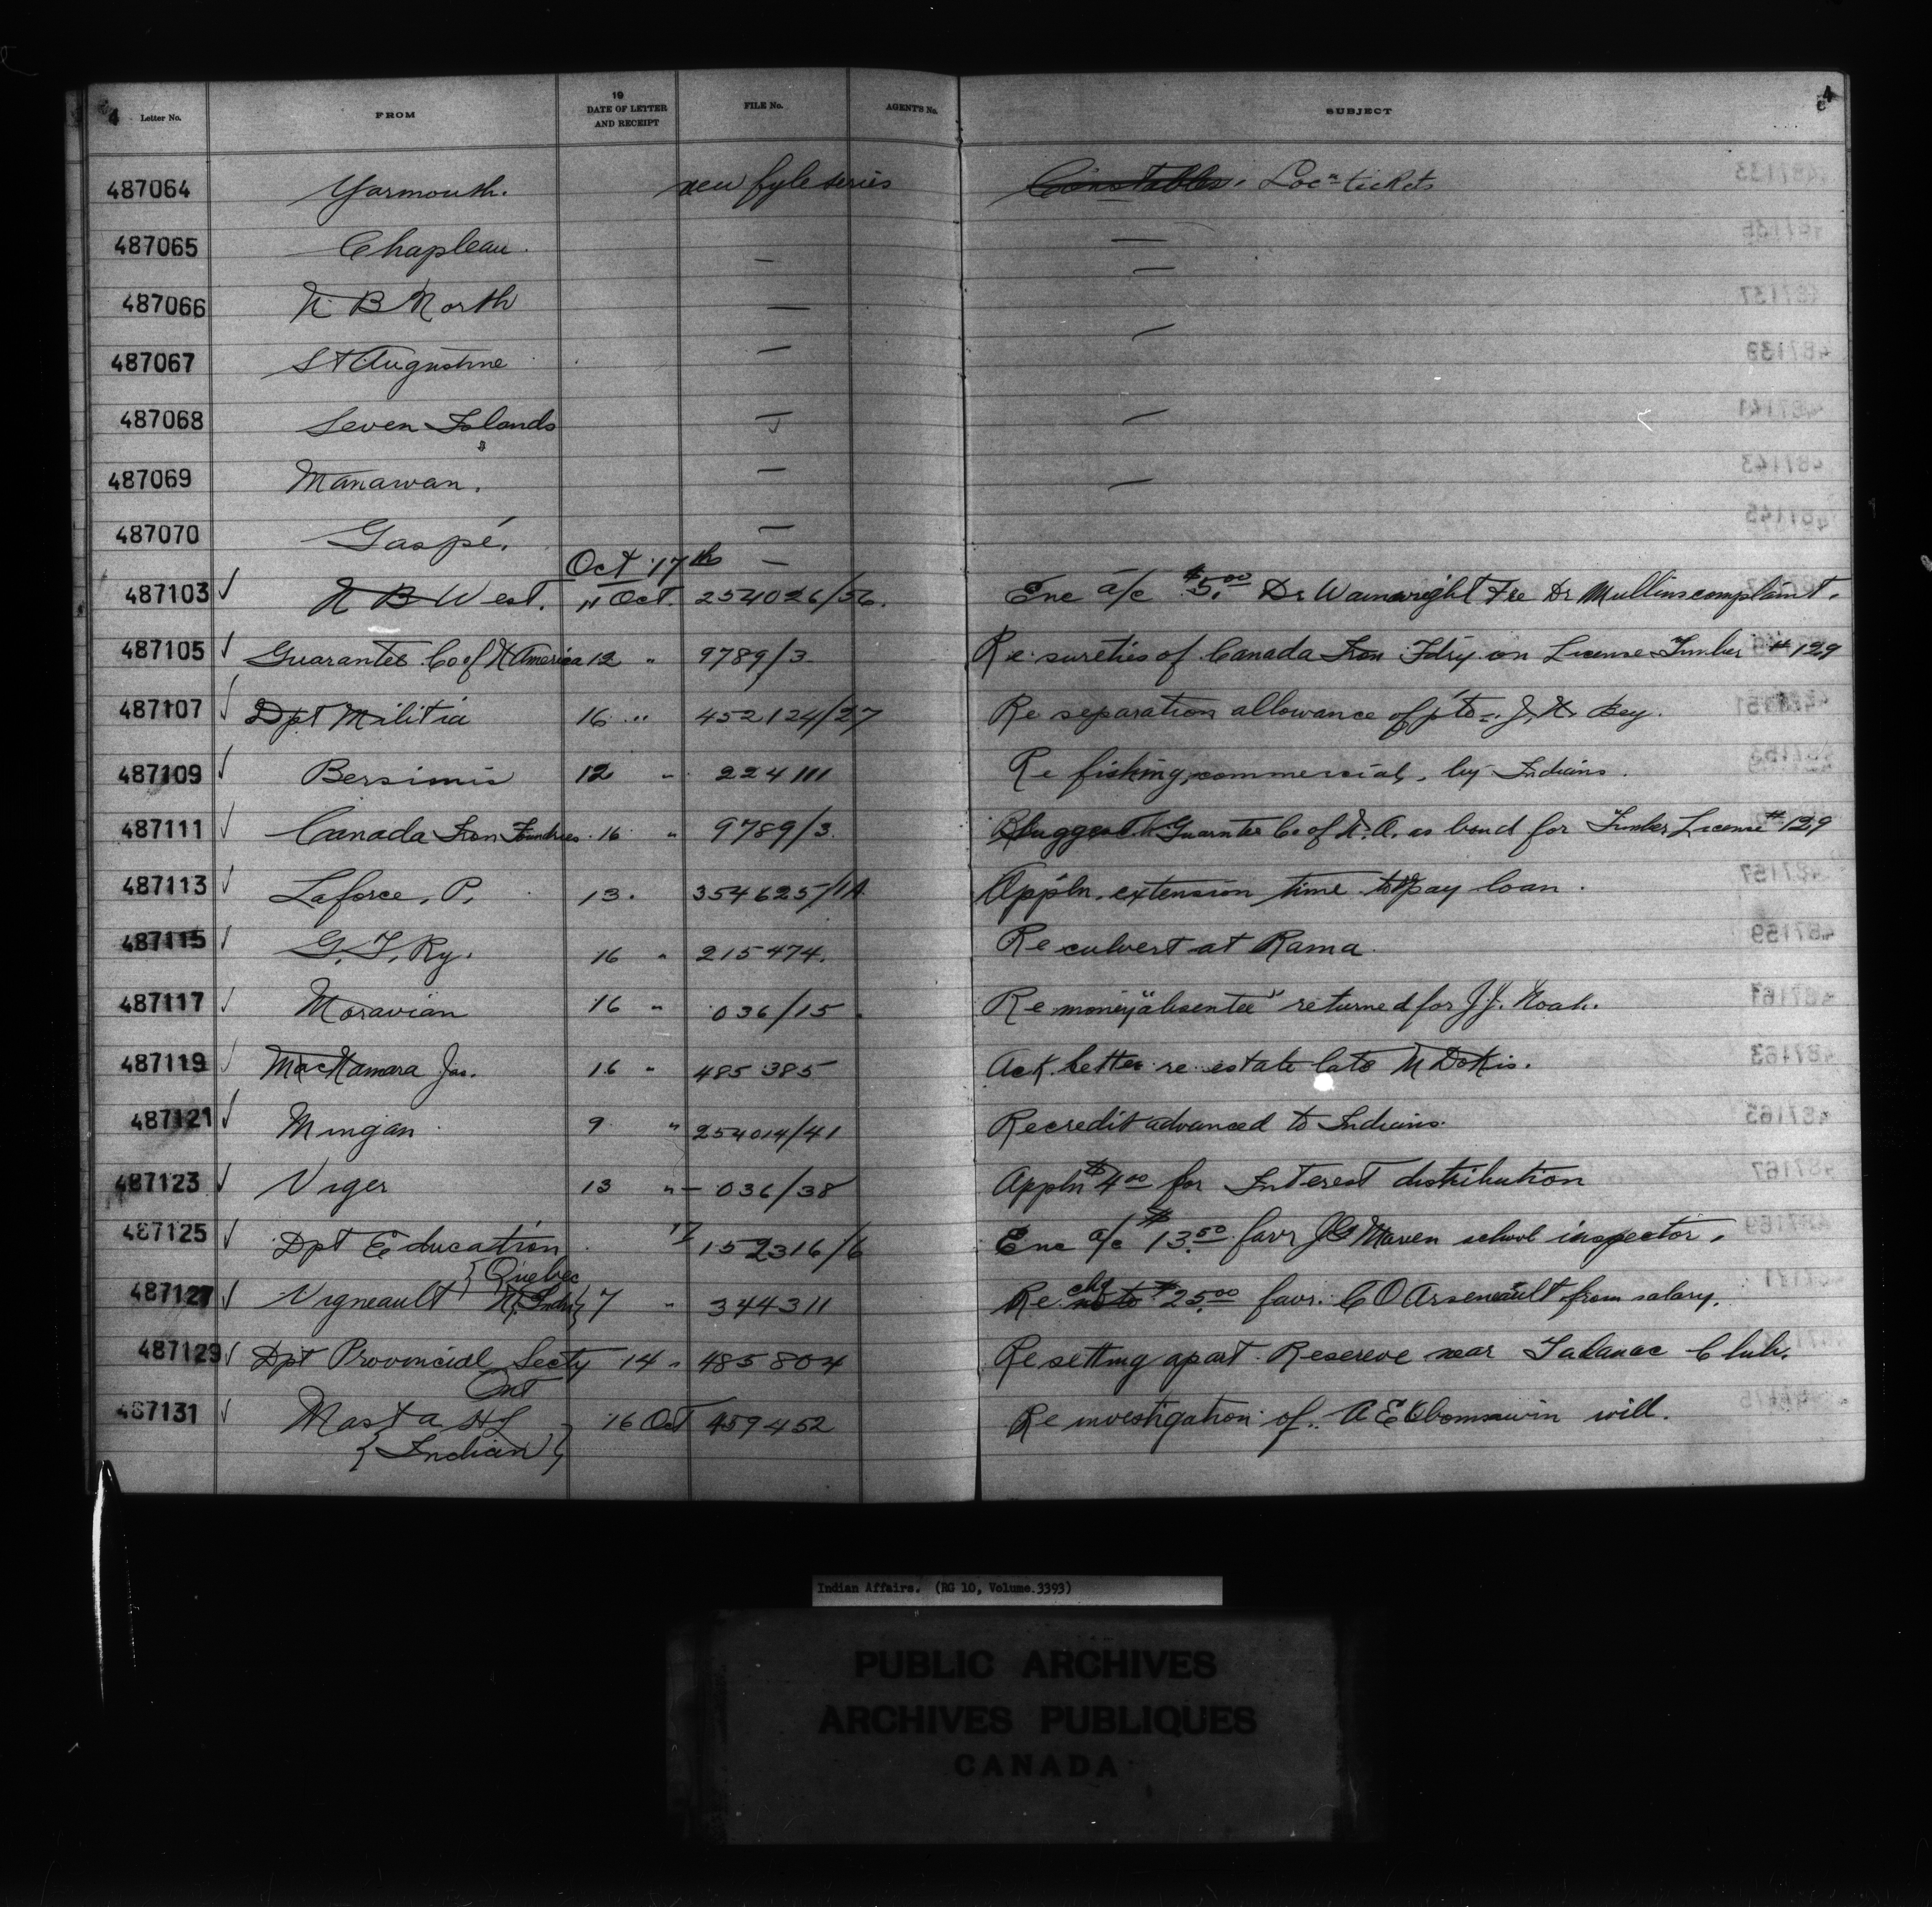 4 Letter No. FROM 19 DATE OF LETTER AND RECEIPT FILE No. AGENT'S No. SUBJECT 4
487064 Yarmouth. new fyle series Constables. Locn tickets
487065 Chapleau. — —
487066 N B North — —
487067 St Augustine — —
487068 Seven Islands — —
487069 Manawan. — —
487070 Gaspé. —
Oct 17th —
487103 ✓ N B West. 11 Oct. 254026/56. Enc a/c $5.00 Dr Wainwright re Dr Mullins complaint.
487105 ✓ Guarantee Co of N America 12 " 9789/3 Re sureties of Canada Iron Fdry on License Timber # 129
487107 ✓ Dpt Militia 16 " 452124/27 Re separation allowance of J. N. Key.
487109 ✓ Bersimis 12 " 224111 Re fishing, commercial, by Indians.
487111 ✓ Canada Iron Foundries 16 " 9789/3. Suggest Guarntee Co of N. A. as bond for Timber License # 129
487113 ✓ Laforce, P. 13. 354625/1A Appln. extension time to pay loan.
487115 ✓ G. T. Ry. 16 " 215474. Re culvert at Rama
487117 ✓ Moravian 16 " 036/15 Re money "absentee" returned for J. J. Noah.
487119 ✓ MacNamara Jas. 16 " 485385 Ack. letter re estate late M Dokis.
487121 ✓ Mingan 9 " 254014/41 Re credit advanced to Indians.
487123 ✓ Viger 13 " — 036/38 Appln $4.00 for Interest distribution
487125 ✓ Dpt Education 17 152316/6 Enc a/c $13.50 favr J G Maven school inspector.
{Quebec
487127 ✓ Vigneault 7 " 344311 Re chq $25.00 favr. C O Arseneault from salary.
487129 ✓ Dpt Provincial Secty 14 " 485804 Re setting apart Reserve near Tadanac Club.
Ont
487131 ✓ Masta H L 16 Oct 459452 Re investigation of A E Obomsawin will.
{Indian}
Indian Affairs. (RG 10, Volume.3393)
PUBLIC ARCHIVES
ARCHIVES PUBLIQUES
CANADA